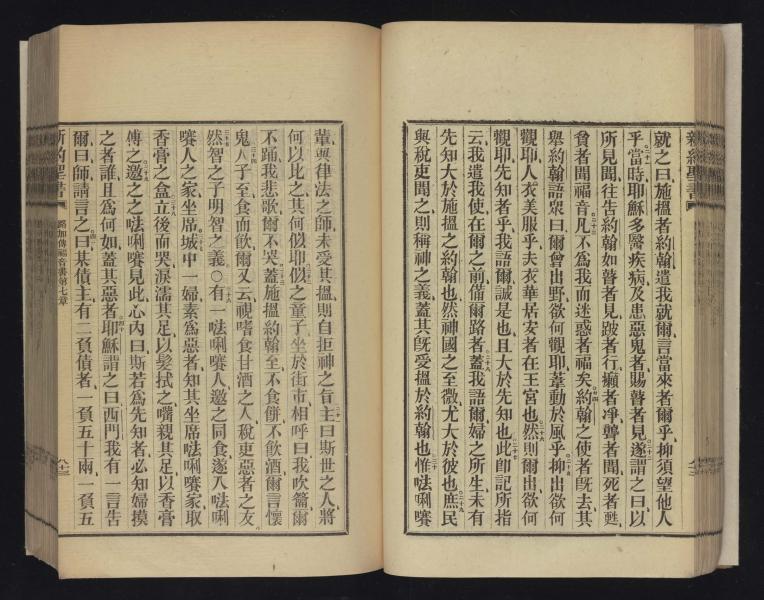 新約聖書
就之曰施搵者約翰遣我就爾言當來者爾乎抑須望他人
乎當時耶穌多醫疾病及患惡鬼者賜瞽者見遂謂之曰以
所見聞往告約翰如瞽者見跛者行癩者凈聾者聞死者甦
貧者聞福音凡不為我而迷惑者福矣約翰之使者旣去其
舉約翰語眾曰爾曾出野欲何觀耶葦動於風乎抑出欲何
觀耶人衣美服乎夫衣華居安者在王宮也然則爾出欲何
觀耶先知者乎我語爾誠是也且大於先知也此卽記所指
云我遣我使在爾之前備爾路者蓋我語爾婦之所生未有
先知大於施搵之約翰也然神國之至微尤大於彼也庶民
與稅吏聞之則稱神之義蓋其旣受搵於約翰也惟㕸唎㘔
輩與律法之師未受其搵則自拒神之旨主曰斯世之人將
何以比之其何似耶似之童子坐於街市相呼曰我吹籥爾
不踊我悲歌爾不哭蓋施搵約翰至不食餅不飲酒爾言懷
鬼人子至食而飲爾又云視嗜食甘酒之人稅吏惡者之友
然智之子明智之義〇有一㕸唎㘔人邀之同食遂入㕸唎
㘔人之家坐席城中一婦素為惡者知其坐席㕸唎㘔家取
香膏之盒立後而哭淚濡其足以髮拭之嚌親其足以香膏
傅之邀之之㕸唎㘔見此心內曰斯若為先知者必知婦摸
之者誰且為何如蓋其惡者耶穌謂之曰西門我有一言告
爾曰師請言之曰某債主有二負債者一負五十兩一負五
新約聖書
路加傳福音書第七章